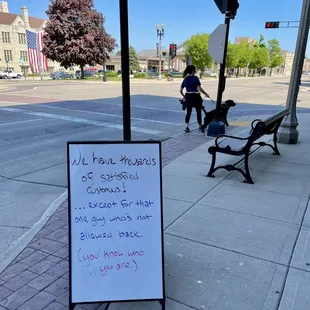 We have thousands
of satisfied
customers!
... except for that
one guy who's not
allowed back.
(you know who
you are.)